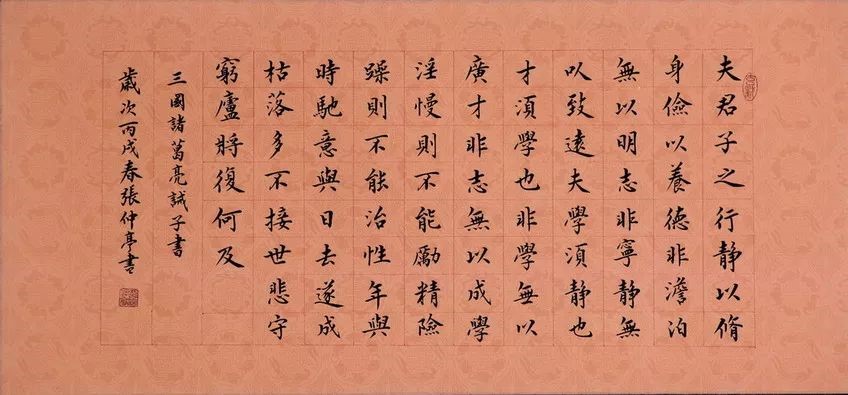 夫君子之行静以脩
身儉以養德非澹泊
無以明志非寧静無
以致遠夫學湏静也
才湏學也非學無以
廣才非志無以成學
淫慢則不能勵精險
躁則不能治性年與
時馳意與日去遂成
枯落多不接世悲守
窮廬將復何及
三國諸葛亮誡子書
歲次丙戌春張仲亭書